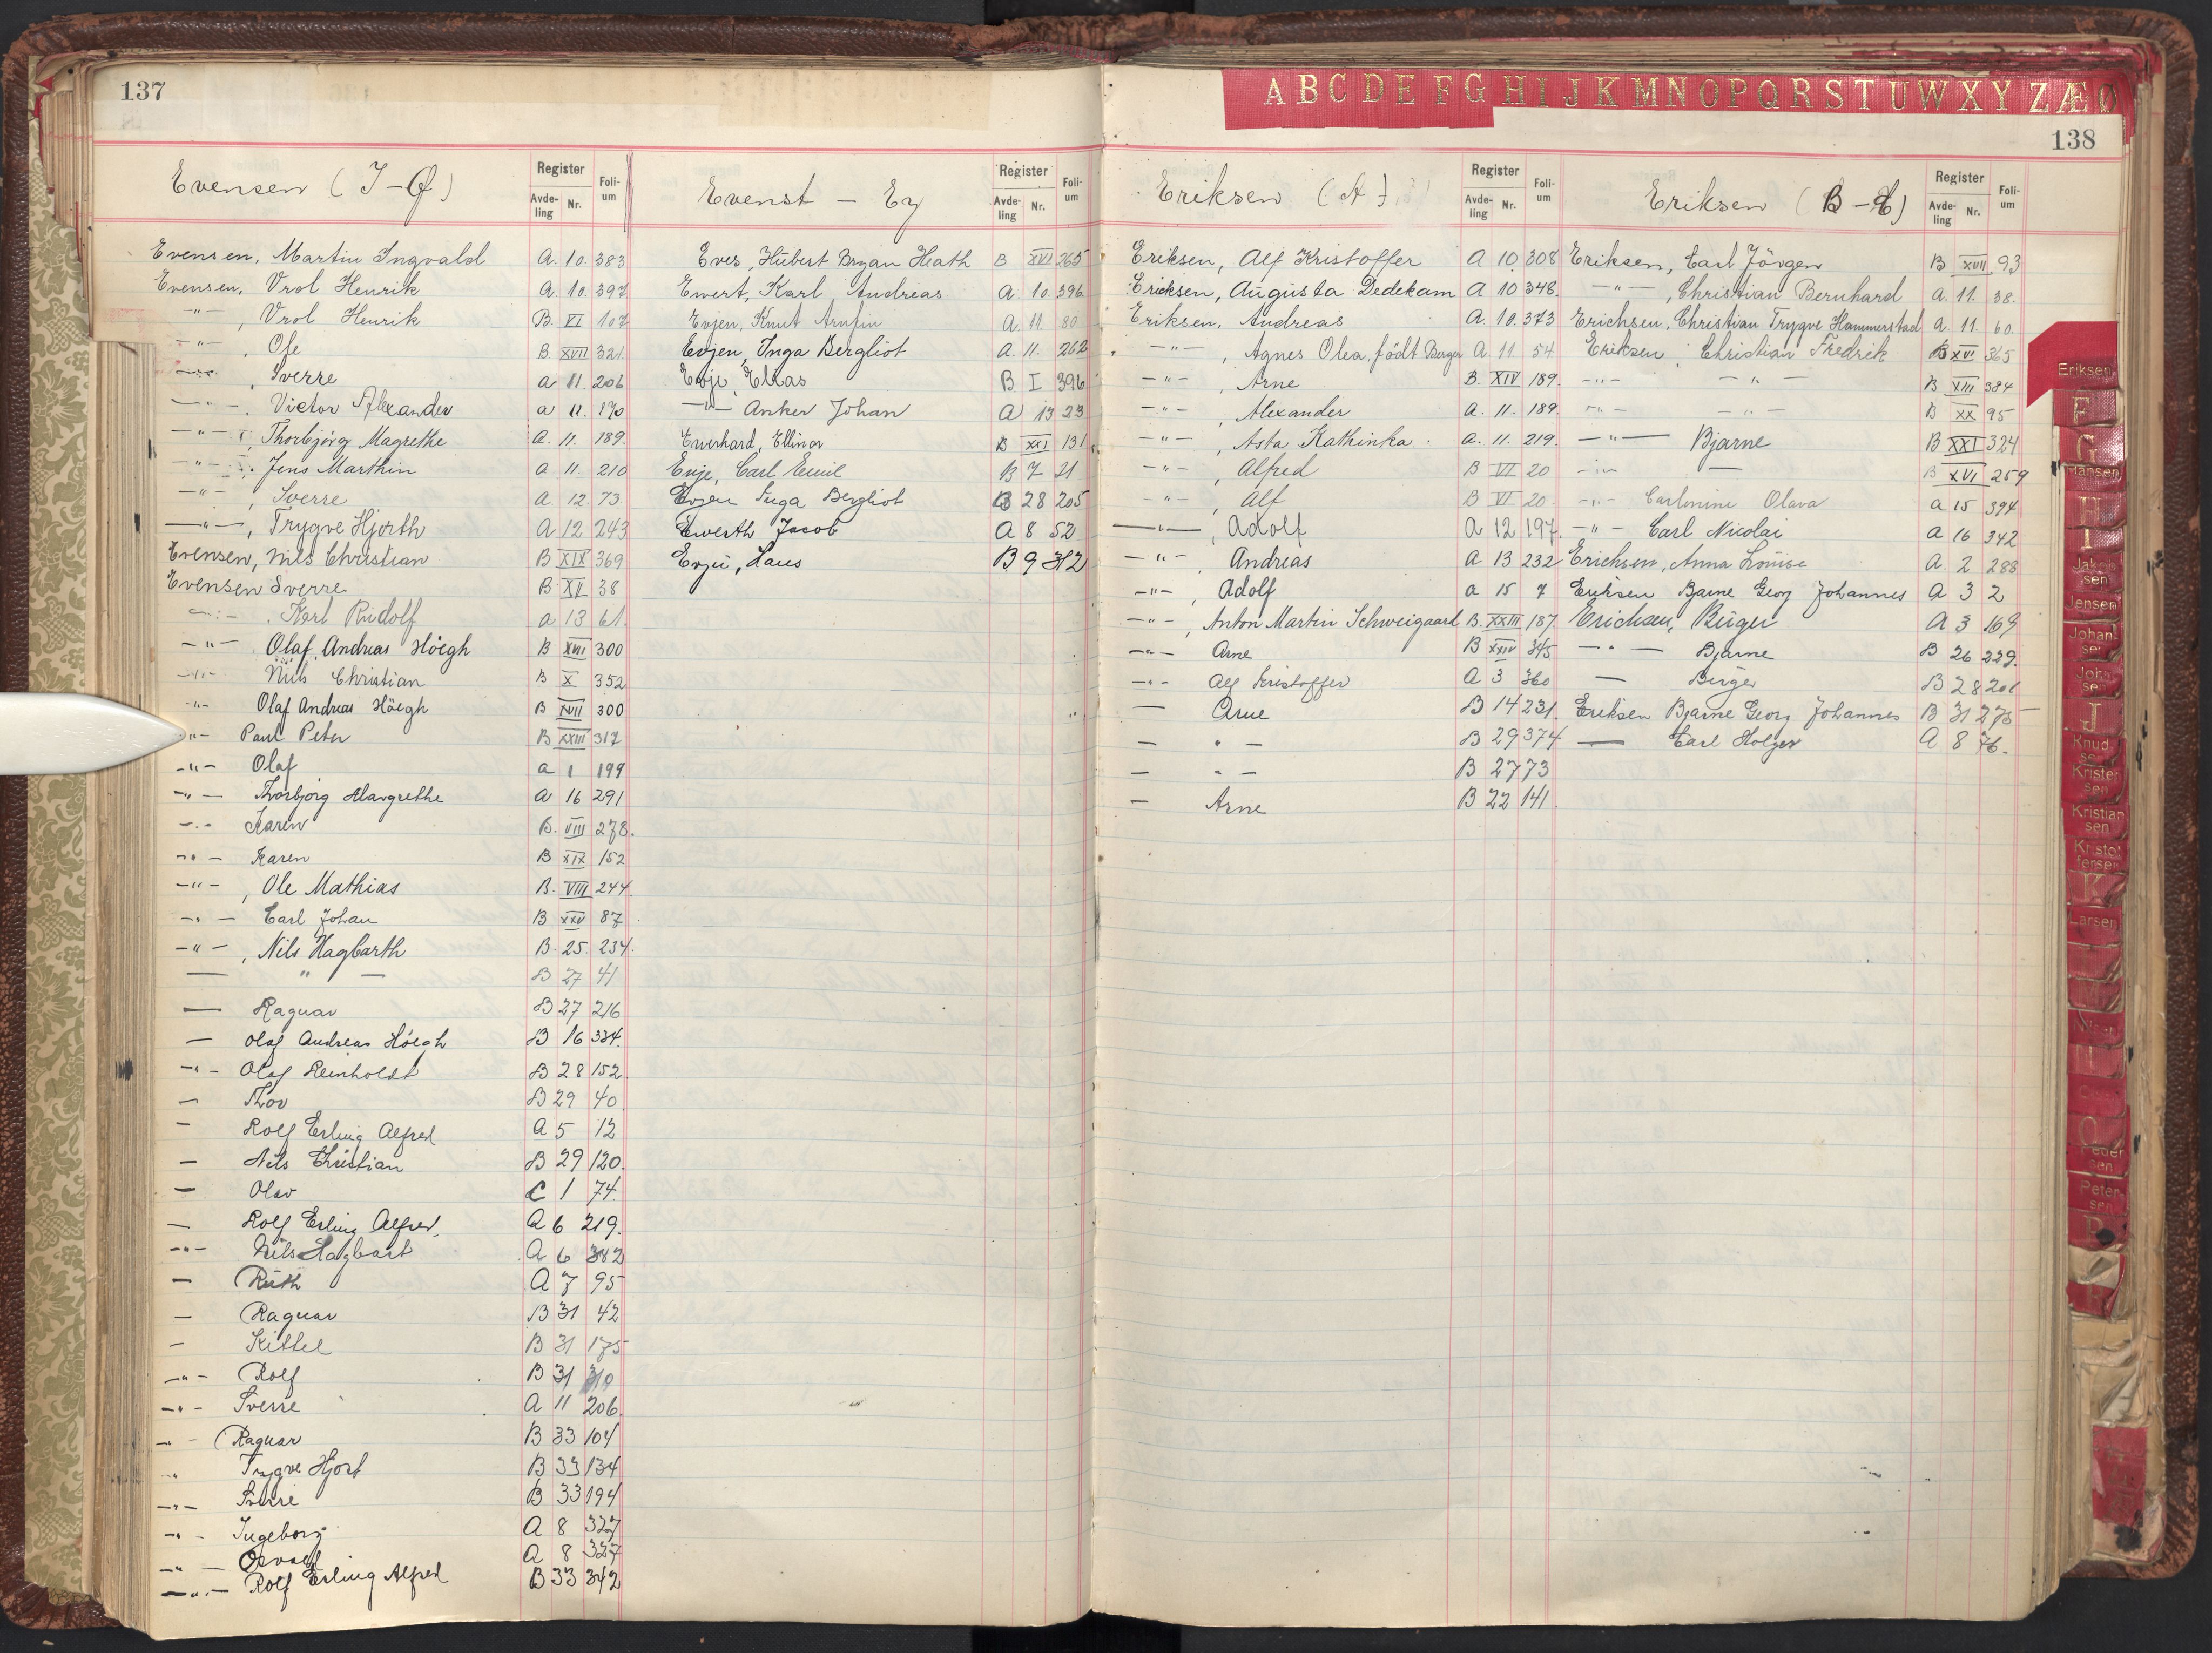 137
Evensen (I-Ø)
Register
Avde-ling
Nr.
Foli-um
Evensen, Martin Ingvald A. 10. 383
Evensen, Vrol Henrik A. 10. 397
-"- , Vrol Henrik B. VI 107
-"- , Ole B. XVII 321
-"- , Sverre a 11. 206
-"- , Victor Alexander a 11. 190
-"- , Thorbjörg Magrethe A. 11. 189
-"- , Jens Marthin a. 11. 210
-"- , Sverre a 12. 73
-"- , Trygve Hjorth A 12 243
Evensen, Nils Christian B XIX 369
Evensen Sverre B XV 38
-"- , Karl Rudolf a 13 61.
-"- Olaf Andreas Höegh B XVII 300
-"- Nils Christian B X 352
-"- Olaf Andreas Höegh B XVII 300
-"- Paul Peter B XXIII 317
-"- Olaf a 1 199
-"- Thorbjörg Margrethe a 16 291
-"- Karen B. VIII 278.
-"- Karen B XIX 152
-"- , Ole Mathias B. VIII 244.
-"- Carl Johan B XXV 87
-"- , Nils Hagbarth B. 25. 234.
— " — B 27 41
— Ragnar B 27 216
— Olaf Andreas Höegh B 16 334.
-"- Olaf Reinholdt B 28 152
— Thor B 29 40
— Rolf Erling Alfred A 5 12
— Nils Christian B 29 120.
— Olav C 1 74.
— Rolf Erling Alfred. A 6 219.
-"- Nils Hagbart A 6 382
— Ruth A 7 95
— Ragnar B 31 42
— Kittel B 31 175
-"- Rolf B 31 310
-"- Sverre A 11 206.
-"- Ragnar B 33 104
" Trygve Hjort B 33 134
-"- Sverre B 33 194
-"- Ingeborg A 8 327
-"- Osvald A 8 327
-"- Rolf Erling Alfred B 33 342
Evenst - Ey
Register
Avde-ling
Nr.
Foli-um
Eves, Hubert Bryan Heath B XVI 265
Ewert, Karl Andreas A. 10. 396
Evjen, Knut Arnfin A 11 80
Evjen, Inga Bergliot A. 11. 262
Evje, Elias B I 396
-"- Anker Johan A 13 23
Ewerhard, Ellinor B XXI 131
Evje, Carl Emil B 7 21
Evjen Inga Bergliot B 28 205
Ewerth Jacob A 8 52
Evju, Hans B 9 312
138
A B C D E F G H I J K M N O P Q R S T U W X Y Z Æ Ø
Eriksen (A)
Register
Avde-ling
Nr.
Foli-um
Eriksen, Alf Kristoffer A 10. 308
Ericksen, Augusta Dedekam A 10 348.
Eriksen, Andreas A. 10. 373
-"- , Agnes Olea, födt Berger A 11. 54
-"- , Arne B. XIV 189.
-"- , Alexander A. 11. 189.
-"- , Asta Kathinka. a. 11. 219.
-"- , Alfred B VI 20
-"- , Alf B VI 20
-"- , Adolf A 12 197.
-"- , Andreas A 13 232
-"- , Adolf a 15 7
-"- , Anton Martin Schweigaard B. XXIII 187.
-"- Arne B XXIV 345
-"- Alf Kristoffer A 3 360
— Arne B 14 231.
— " — B 29 374
— " — B 27 73
— Arne B 22 141.
Eriksen (B-E)
Register
Avde-ling
Nr.
Foli-um
Eriksen, Carl Jörgen B XVII 93
-"- , Christian Bernhard a. 11. 38.
Erichsen, Christian Trygve Hammerstad a 11. 60.
Eriksen Christian Fredrik B XVI 365
-"- -"- B XIII 384
-"- -"- B XX 95
-"- Bjarne B XXI 324
-"- — B XVI 259
-"- Carlmine Olava a 15 394
-"- Carl Nicolai a 16 342
Erichsen, Anna Louise A. 2 288
Eriksen Bjarne Georg Johannes A 3 2
Erichsen, Birger A 3 169
-"- Bjarne B 26 229.
— Birger B 28 201
Eriksen Bjarne Georg Johannes B 31 275
— Carl Holger A 8 76.
Eriksen
F
G
Hansen
H
I
Jakob-sen
Jensen
Johan-sen
John-sen
J
Knud-sen
Krister-sen
Kristian-sen
Kristo-fersen
K
Larsen
Nilsen
N
O
Peder-sen
Peter-sen
P